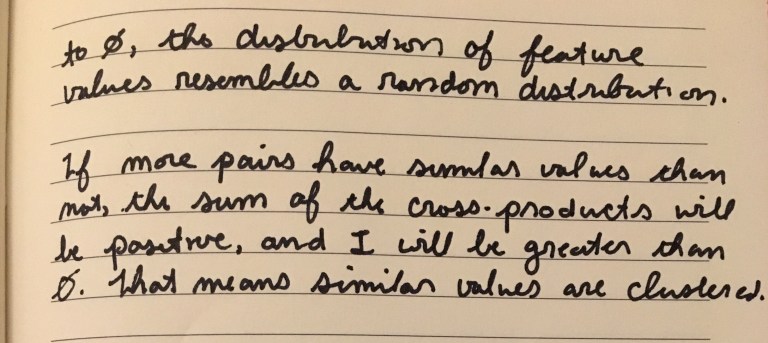 to Ø, the distribution of feature
values resembles a random distribution.
If more pairs have similar values than
not, the sum of the cross-products will
be positive, and I will be greater than
Ø. That means similar values are clustered.